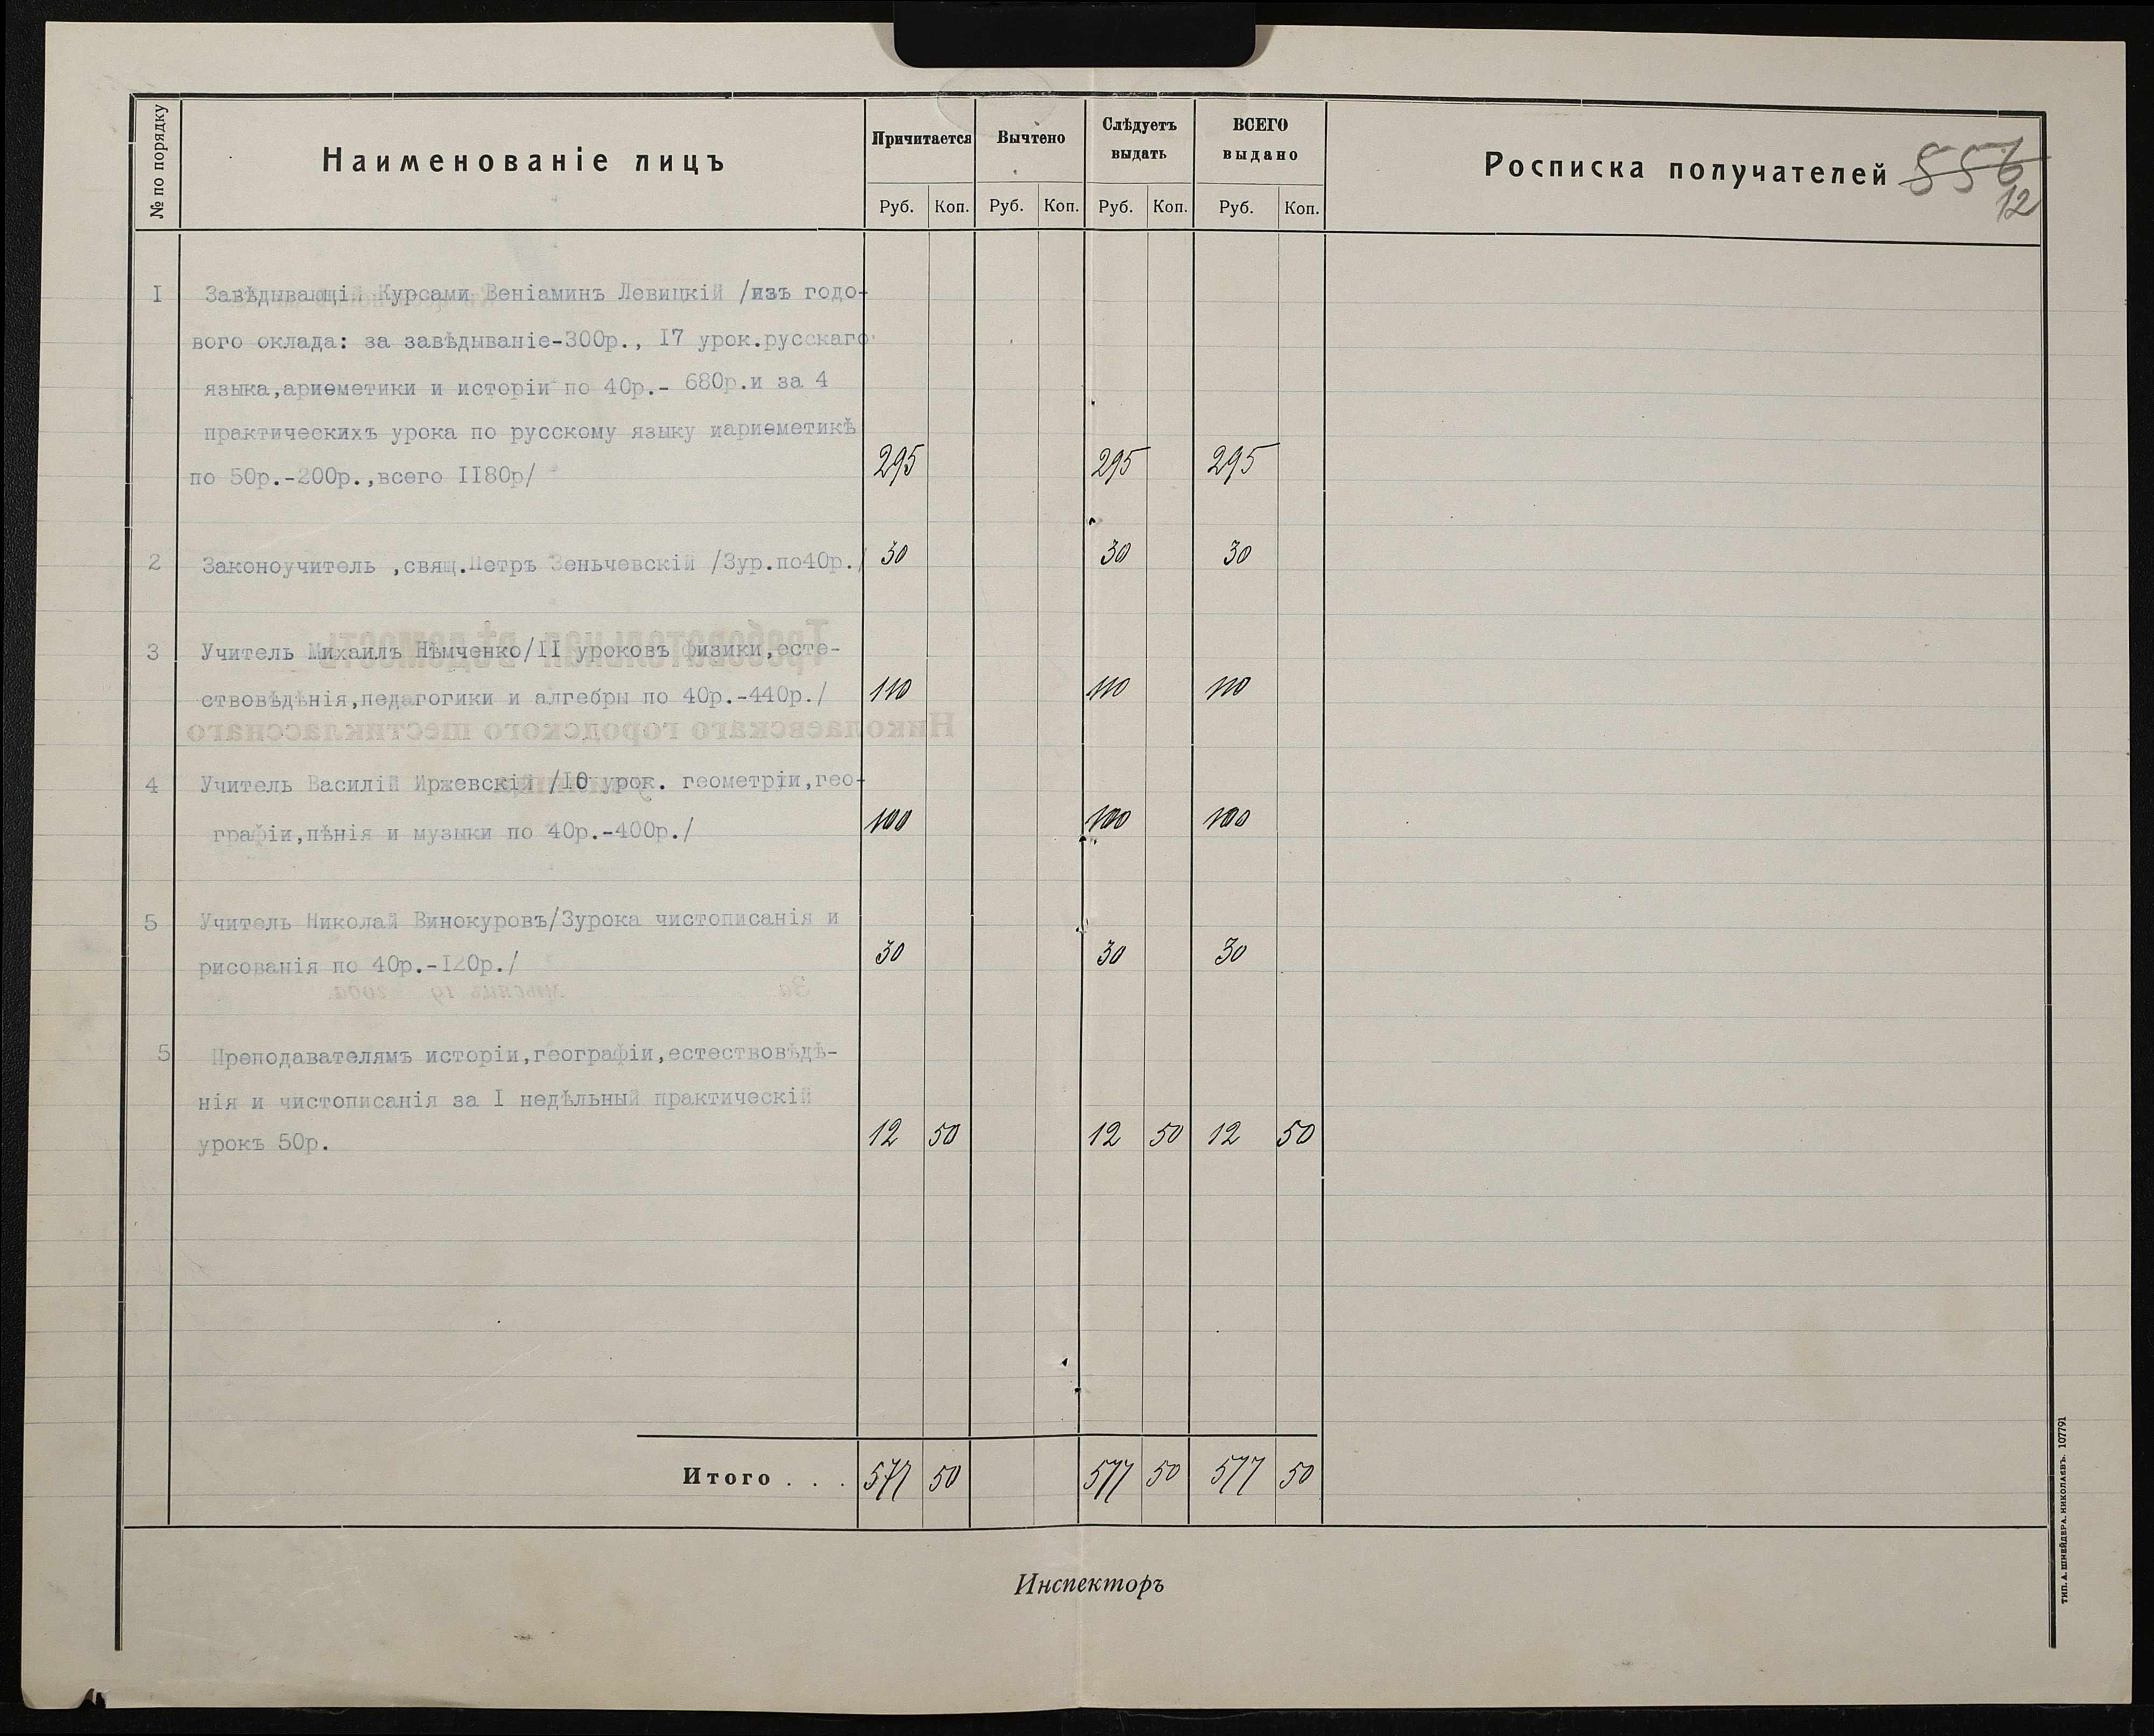 № по порядку
Наименованіе лицъ
Причитается
Вычтено
Слѣдуетъ
выдать
ВСЕГО
выдано
Росписка получателей
556
12
Руб. Коп. Руб. Коп. Руб. Коп. Руб. Коп.
I Завѣдывающій Курсами Веніаминъ Левицкій /изъ годо-
вого оклада: за завѣдываніе-300р., I7 урок.русскаго
языка,ариѳметики и исторіи по 40р.- 680р.и за 4
практическихъ урока по русскому языку иариѳметикѣ
по 50р.-200р.,всего II80р/ 295 295 295
2 Законоучитель ,свящ.Петръ Зеньчевскій /3ур.по40р./ 30 30 30
3 Учитель Михаилъ Нѣмченко/II уроковъ физики,есте-
ствовѣдѣнія,педагогики и алгебры по 40р.-440р./ 110 110 110
4 Учитель Василій Иржевскій /I0 урок. геометріи,гео-
графіи,пѣнія и музыки по 40р.-400р./ 100 100 100
5 Учитель Николай Винокуровъ/3урока чистописанія и
рисованія по 40р.-I20р./ 30 30 30
5 Преподавателямъ исторіи,географіи,естествовѣдѣ-
нія и чистописанія за I недѣльный практическій
урокъ 50р. 12 50 12 50 12 50
Итого . . . 577 50 577 50 577 50
Инспекторъ
ТИП. А. ШНЕЙДЕРА. НИКОЛАЕВЪ. 107791